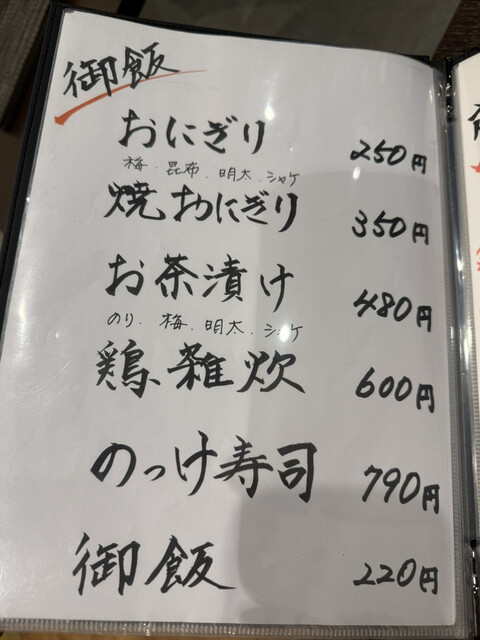 御飯
おにぎり 250円
梅、昆布、明太、シャケ
焼おにぎり 350円
お茶漬け 480円
のり、梅、明太、シャケ
鶏雑炊 600円
のっけ寿司 790円
御飯 220円